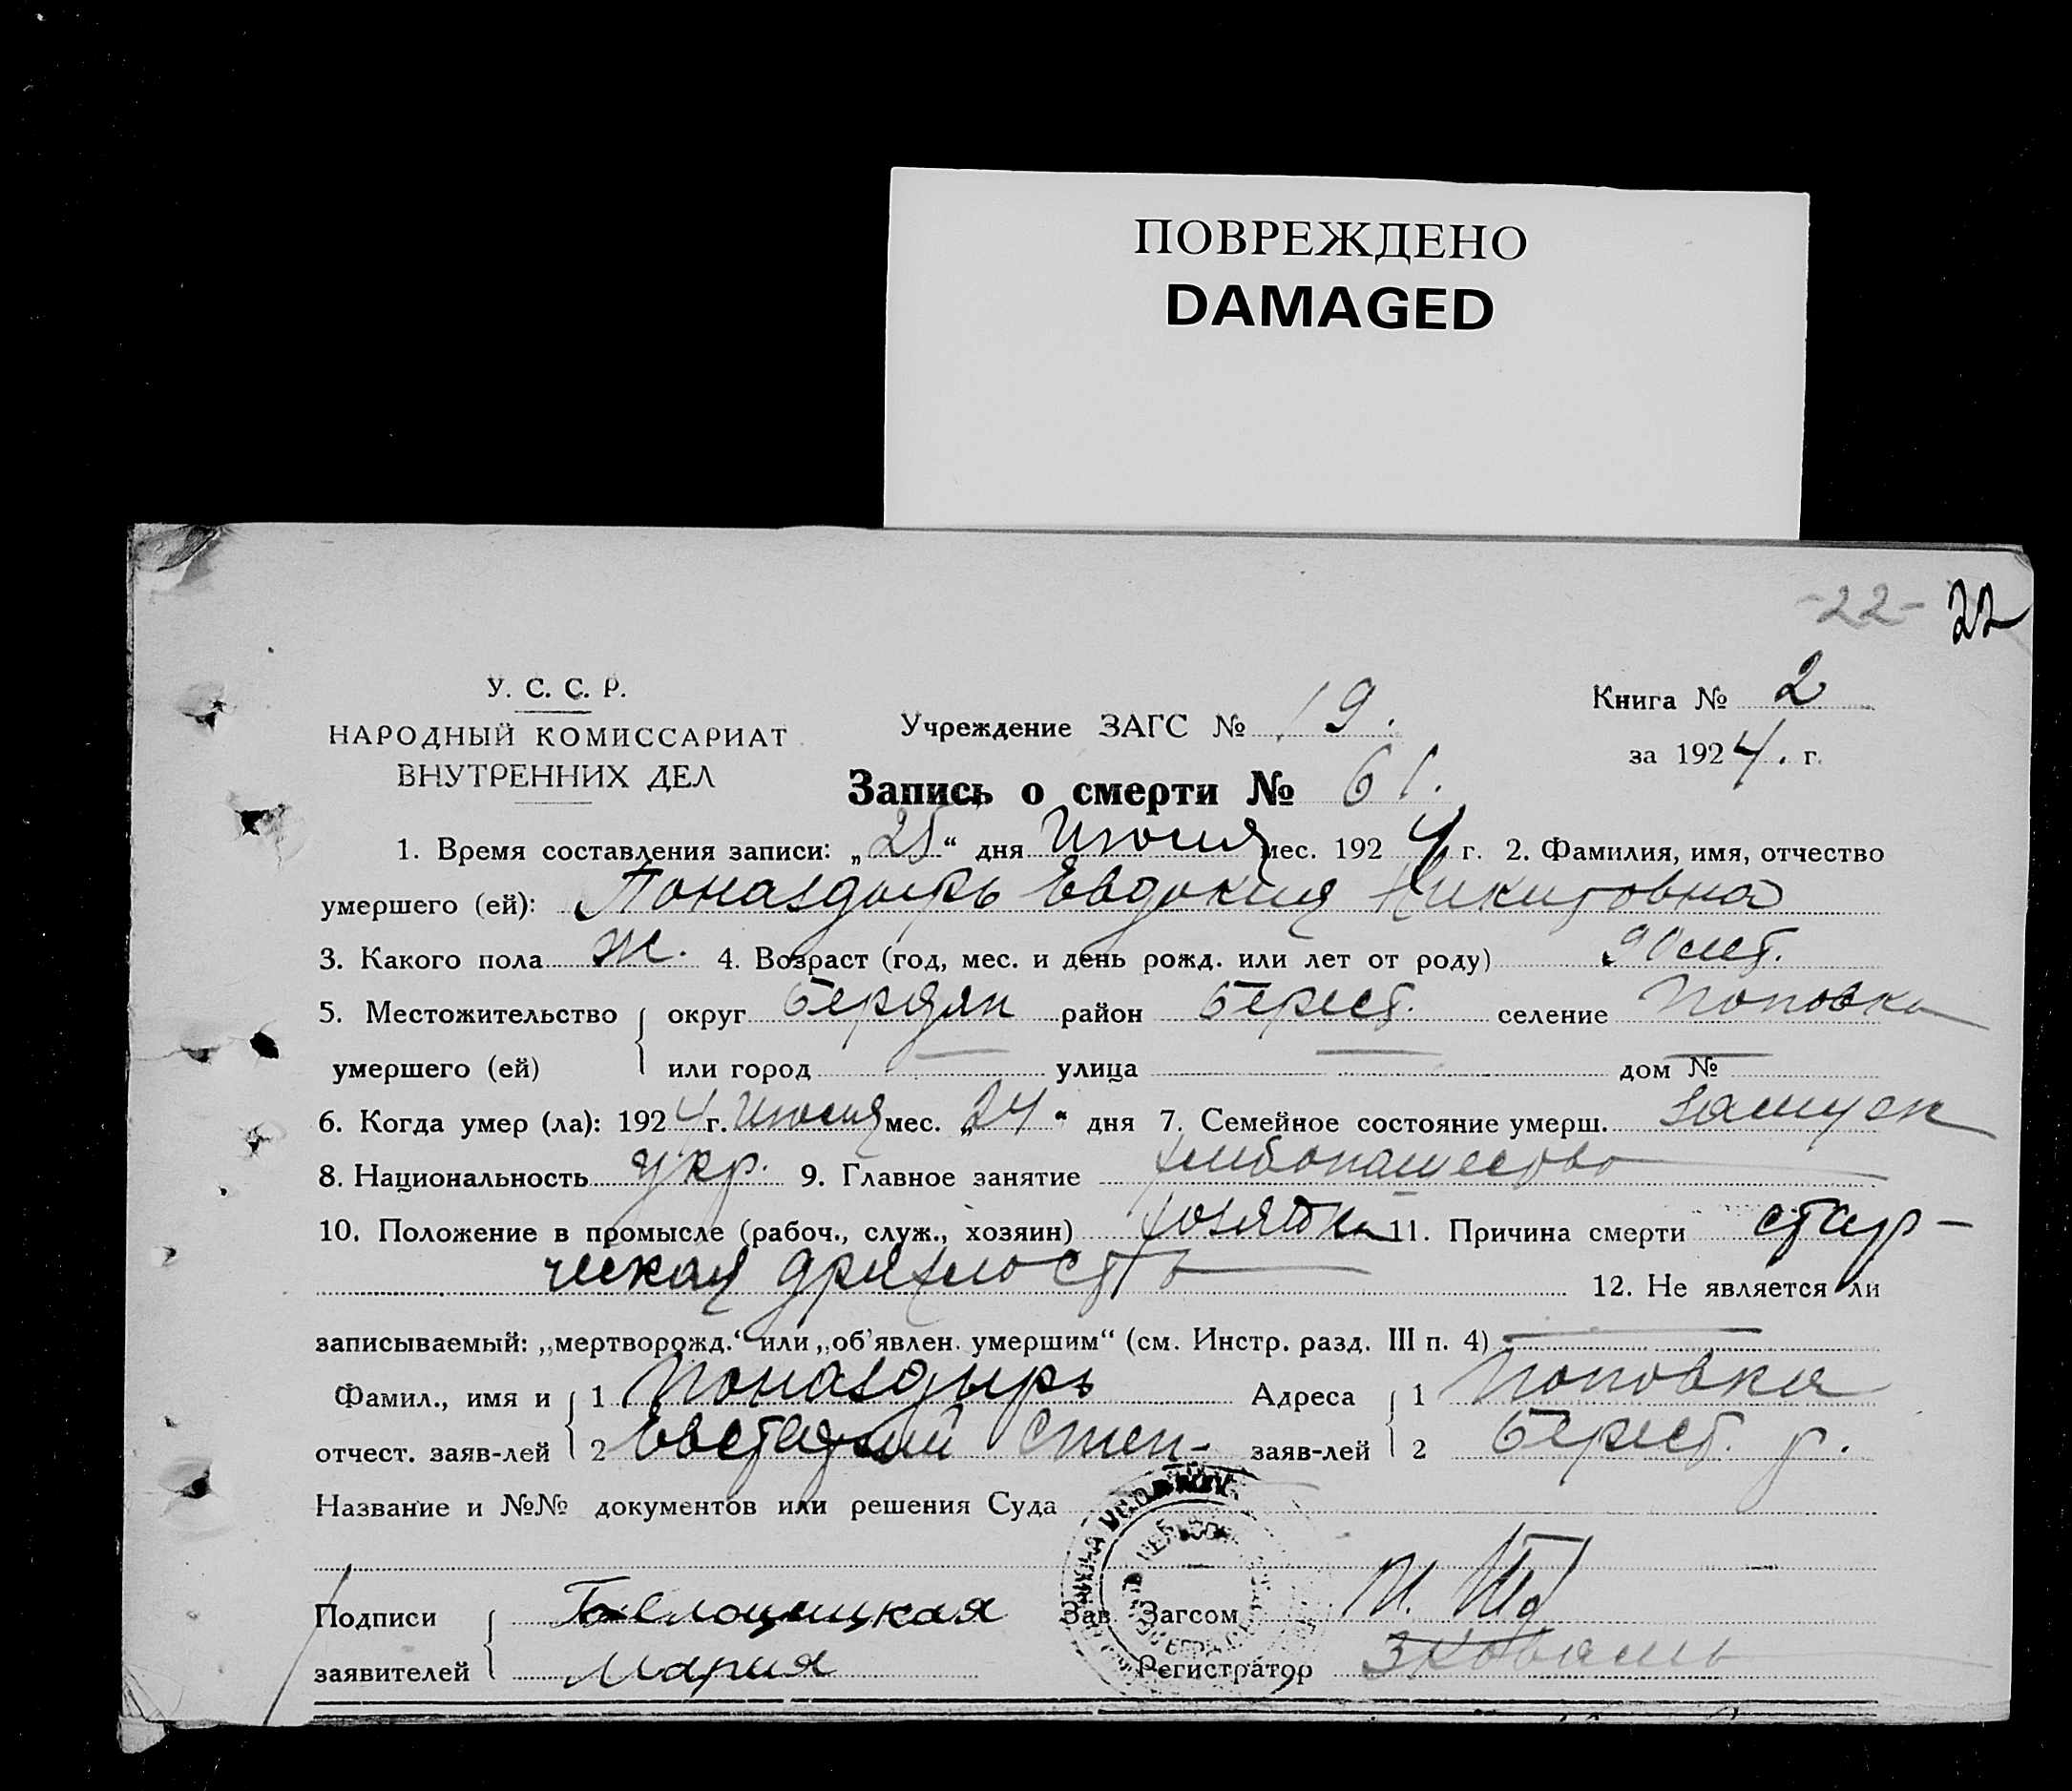 ПОВРЕЖДЕНО
DAMAGED
-22- 22
У. С. С. Р.
НАРОДНЫЙ КОМИССАРИАТ
ВНУТРЕННИХ ДЕЛ
Учреждение ЗАГС № 19.
Книга № 2
за 1924. г.
Запись о смерти № 61.
1. Время составления записи: „25“ дня Июня мес. 1924 г. 2. Фамилия, имя, отчество
умершего (ей): Поназдырь Евдокия Никитовна
3. Какого пола ж. 4. Возраст (год, мес. и день рожд. или лет от роду) 90 лет.
5. Местожительство округ Бердян район Берест. селение Поповка
умершего (ей) или город — улица — дом № —
6. Когда умер (ла): 1924 г. Июня мес. „24“ дня 7. Семейное состояние умерш. замуж
8. Национальность укр. 9. Главное занятие хлибопашество
10. Положение в промысле (рабоч., служ., хозяин) хозяйка 11. Причина смерти стар-
ческая дряхлость 12. Не является ли
записываемый: „мертворожд.“ или „об'явлен. умершим“ (см. Инстр. разд. III п. 4) —
Фамил., имя и 1 Поназдырь Адреса 1 Поповка
отчест. заяв-лей 2 Евстафий Степ- заяв-лей 2 Берест. р.
Название и №№ документов или решения Суда
Подписи Белошицкая Зав. Загсом
заявителей Мария Регистратор Коваль